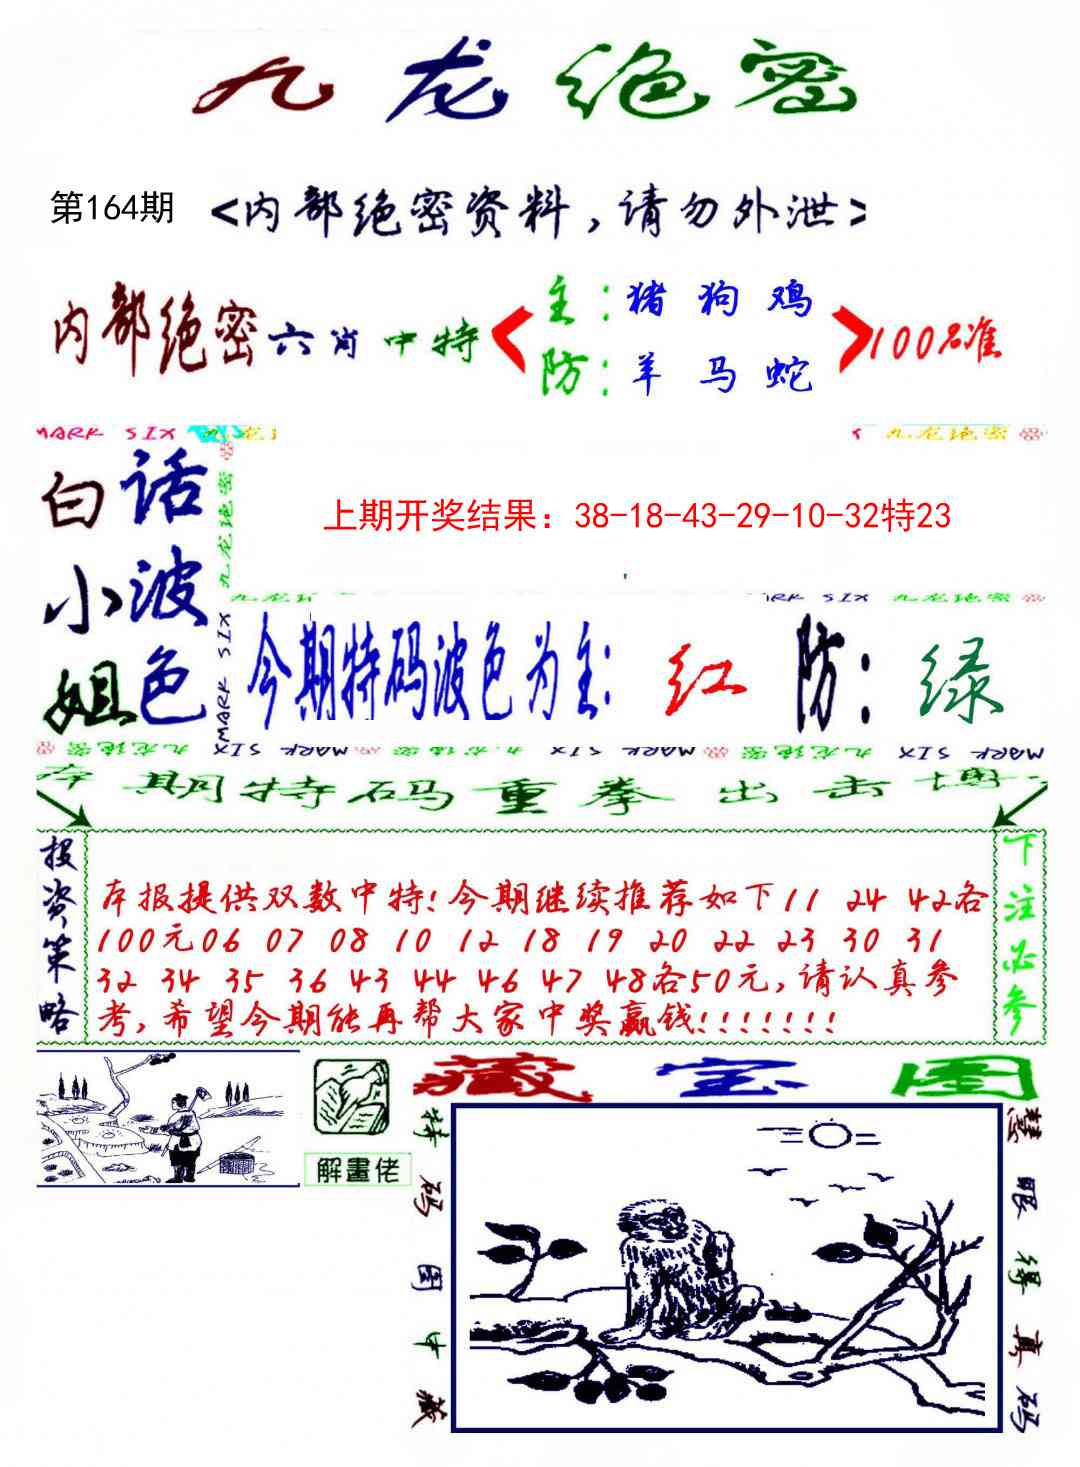 九龙绝密
第164期 <内部绝密资料，请勿外泄>
内部绝密六肖中特
主：猪 狗 鸡
防：羊 马 蛇
100%准
MARK SIX 九龙绝密
白话小姐波色
上期开奖结果：38-18-43-29-10-32特23
今期特码波色为主：红 防：绿
MARK SIX 九龙绝密 MARK SIX 九龙绝密 MARK SIX
本期特码重拳出击博
投资策略
本报提供双数中特！今期继续推荐如下11 24 42各
100元06 07 08 10 12 18 19 20 22 23 30 31
32 34 35 36 43 44 46 47 48各50元，请认真参
考，希望今期能再帮大家中奖赢钱！！！！！！！
下注必参
解畫佬
藏宝图
特码图中藏
慧眼得真码